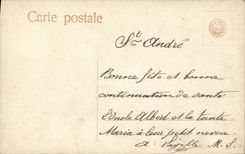 Carte postale
St André
Bonne fête et bonne
continuation de santé
L'Oncle Albert et la tante
Maria à leur petit neveu
a